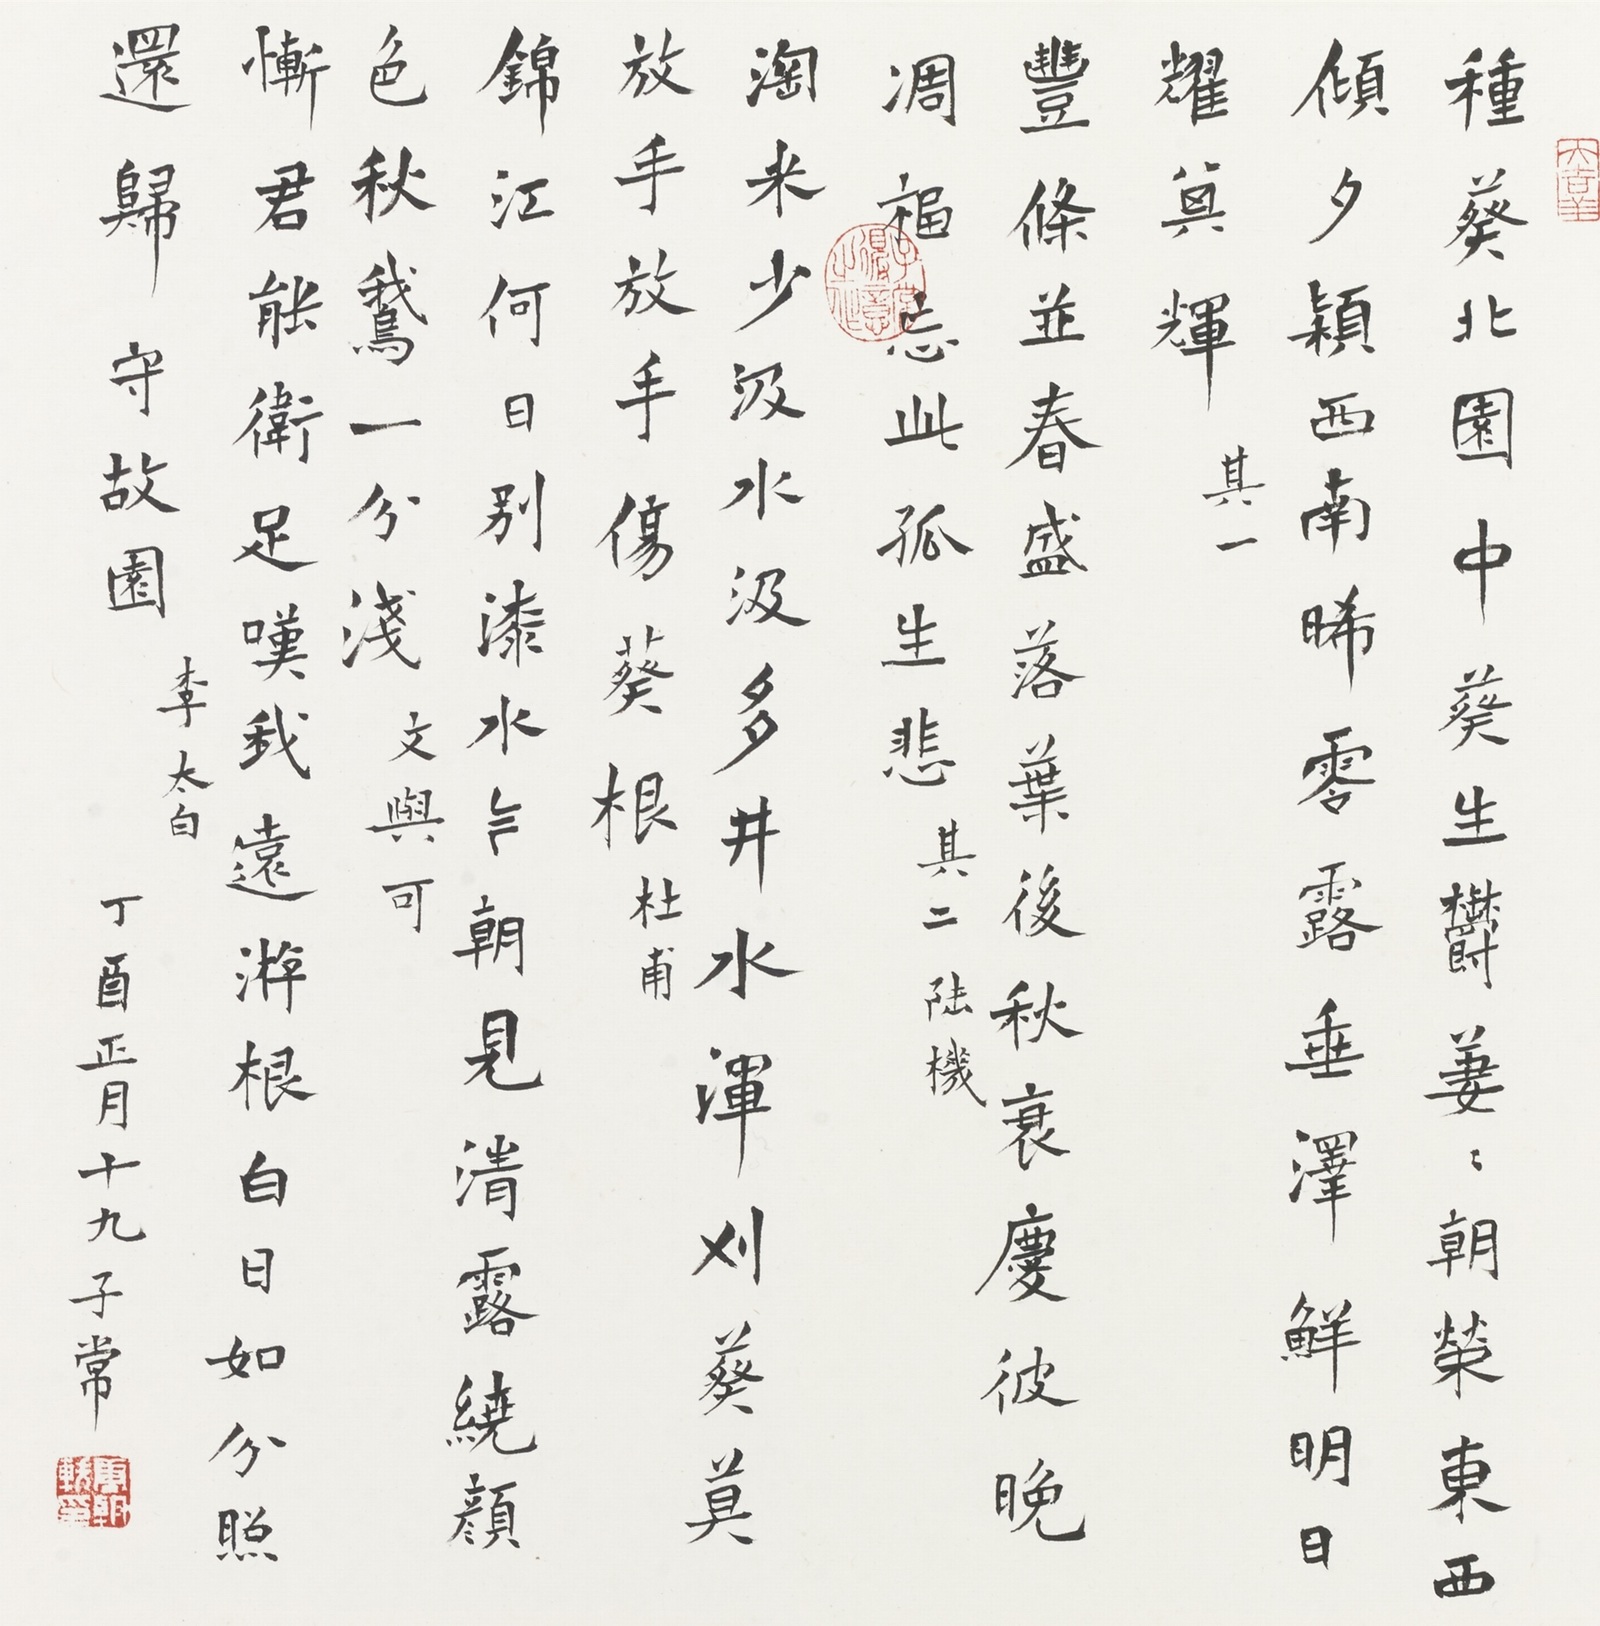 種葵北園中葵生鬱萋〻朝榮東西
傾夕穎西南晞零露垂澤鮮明日
耀其輝 其一
豐條並春盛落葉後秋衰慶彼晚
凋福忘此孤生悲 其二 陸機
淘米少汲水汲多井水渾刈葵莫
放手放手傷葵根 杜甫
錦江何日別漆水今朝見清露繞顏
色秋鵞一分淺 文與可
慚君能衛足嘆我遠游根白日如分照
還歸守故園 李太白
丁酉正月十九子常